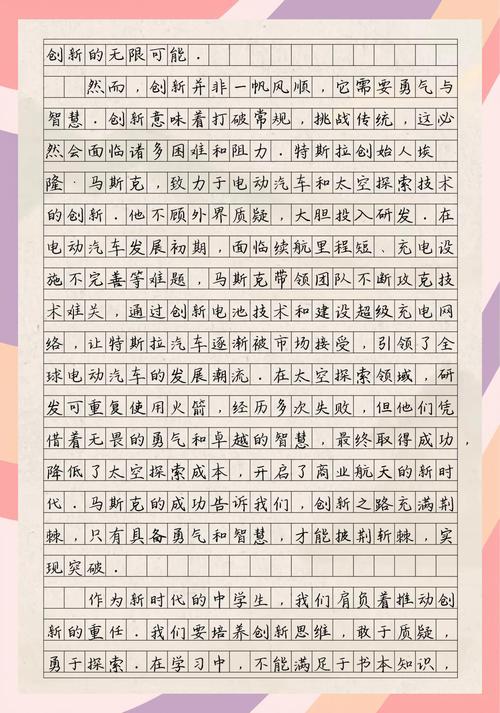 创新的无限可能.
然而,创新并非一帆风顺,它需要勇气与
智慧.创新意味着打破常规,挑战传统,这必
然会面临诸多困难和阻力.特斯拉创始人埃
隆·马斯克,致力于电动汽车和太空探索技术
的创新.他不顾外界质疑,大胆投入研发.在
电动汽车发展初期,面临续航里程短、充电设
施不完善等难题,马斯克带领团队不断攻克技
术难关,通过创新电池技术和建设超级充电网
络,让特斯拉汽车逐渐被市场接受,引领了全
球电动汽车的发展潮流.在太空探索领域,研
发可重复使用火箭,经历多次失败,但他们凭
借着无畏的勇气和卓越的智慧,最终取得成功,
降低了太空探索成本,开启了商业航天的新时
代.马斯克的成功告诉我们,创新之路充满荆
棘,只有具备勇气和智慧,才能披荆斩棘,实
现突破.
作为新时代的中学生,我们肩负着推动创
新的重任.我们要培养创新思维,敢于质疑,
勇于探索.在学习中,不能满足于书本知识,